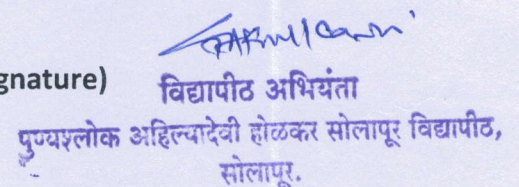 gnature)
विद्यापीठ अभियंता
पुण्यश्लोक अहिल्यादेवी होळकर सोलापूर विद्यापीठ,
सोलापूर.